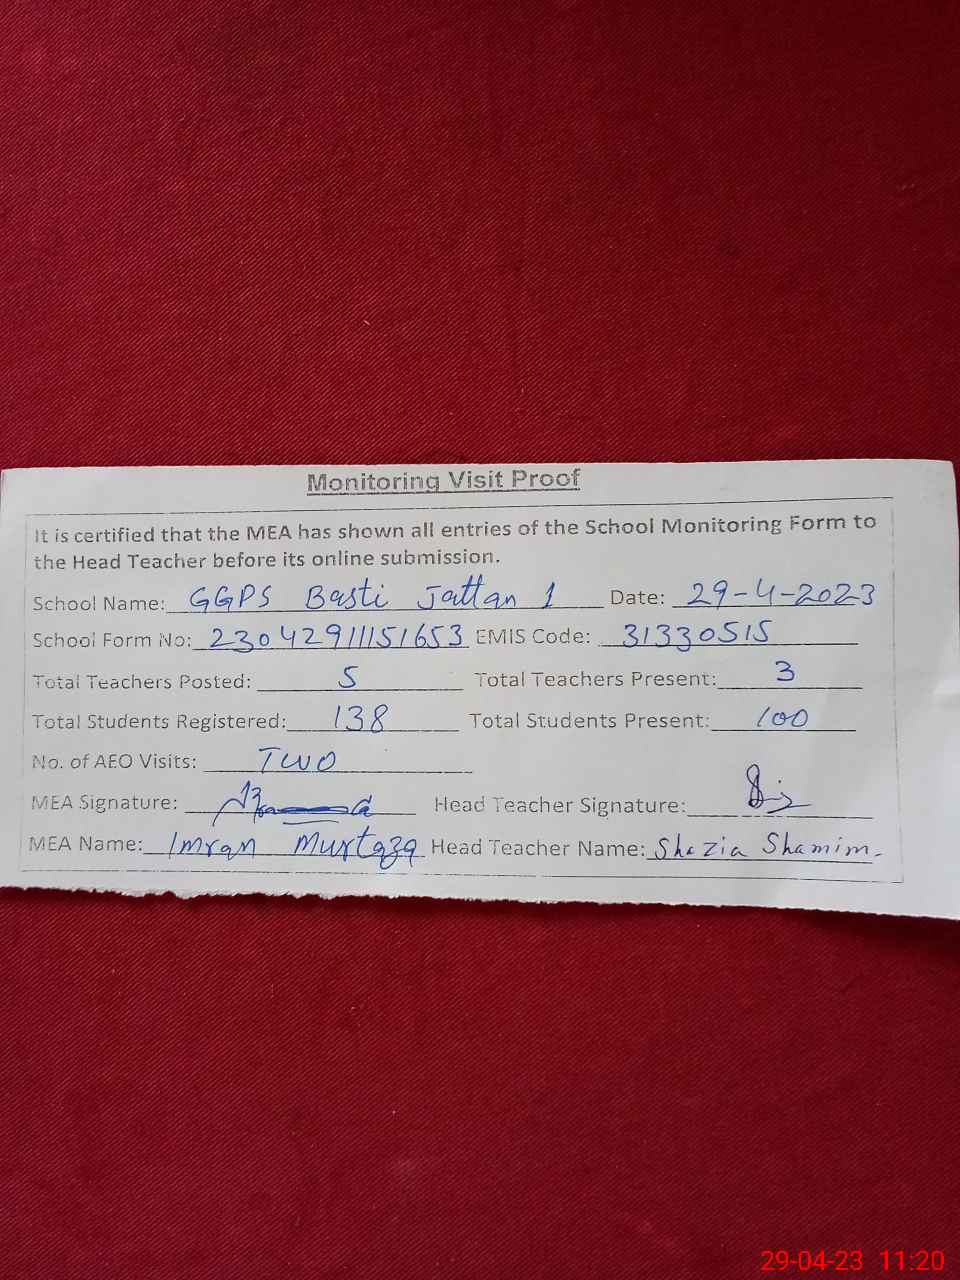 Monitoring Visit Proof
It is certified that the MEA has shown all entries of the School Monitoring Form to
the Head Teacher before its online submission.
School Name: GGPS Basti Jattan 1 Date: 29-4-2023
School Form No: 23042911151653 EMIS Code: 31330515
Total Teachers Posted: 5 Total Teachers Present: 3
Total Students Registered: 138 Total Students Present: 100
No. of AEO Visits: TWO
MEA Signature: Head Teacher Signature:
MEA Name: Imran Murtaza Head Teacher Name: Shazia Shamim.
29-04-23 11:20